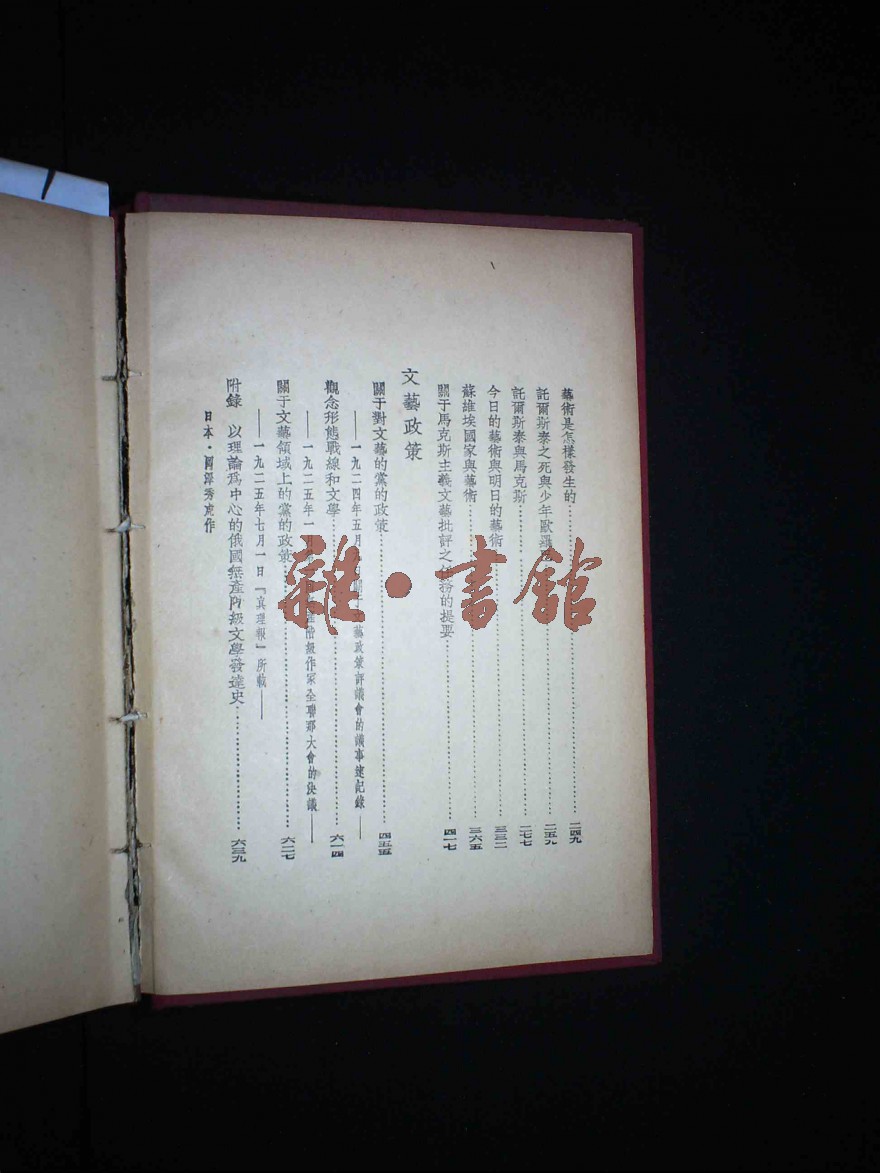 藝術是怎樣發生的⋯⋯二四九
託爾斯泰之死與少年歐羅⋯⋯二五九
託爾斯泰與馬克斯⋯⋯二七七
今日的藝術與明日的藝術⋯⋯三三二
蘇維埃國家與藝術⋯⋯三六五
關于馬克斯主義文藝批評之任務的提要⋯⋯四一七
文藝政策
關于對文藝的黨的政策⋯⋯四五五
——一九二四年五月 藝政策評議會的議事速記錄——
觀念形態戰線和文學⋯⋯六一四
——一九二五年一月 產階級作家全聯邦大會的決議——
關于文藝領域上的黨的政策⋯⋯六二七
——一九二五年七月一日『真理報』所載——
附錄 以理論爲中心的俄國無產階級文學發達史⋯⋯六三九
日本・岡澤秀虎作
雜・書館